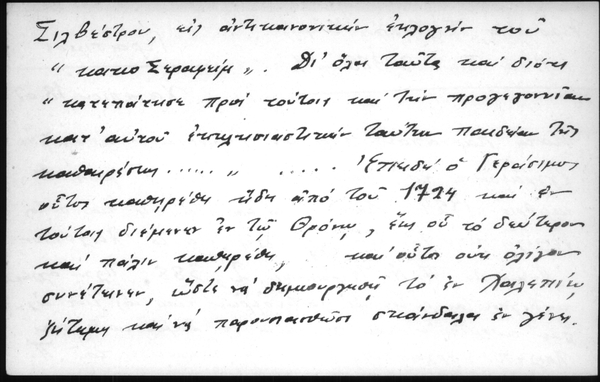 Σιλβέστρου, εἰς ἀντικανονικήν ἐκλογήν τοῦ
"κακοΣεραφείμ". Δι' ὅλα ταῦτα καί διότι
"κατεπάτησε πρός τούτοις καί τήν προγεγονυῖαν
κατ' αὐτοῦ ἐκκλησιαστικήν ταύτην παιδείαν τῆς
καθαιρέσεως ....." ..... Ἐπειδή ὁ Γεράσιμος
οὗτος καθῃρέθη ἤδη ἀπό τοῦ 1724 καί ἐν
τούτοις διέμενεν ἐν τῷ Θρόνῳ, ἐξ οὗ τό δεύτερον
καί πάλιν καθῃρέθη, καί οὗτος οὐκ ὀλίγον
συνέτεινεν, ὥστε νά δημιουργηθῇ τό ἐν Χαλεπίῳ
ζήτημα καί νά παρουσιασθῶσι σκάνδαλα ἐν γένει.